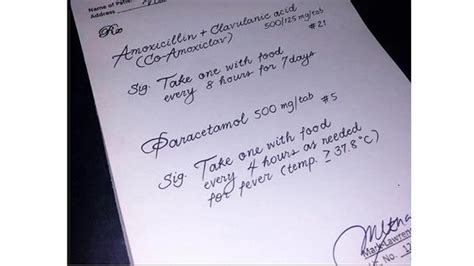 Name of Patie
Address
Rx
Amoxicillin + Clavulanic acid
(Co-Amoxiclav) 500/125 mg/tab
#21
Sig. Take one with food
every 8 hours for 7days
Paracetamol 500 mg/tab #5
Sig. Take one with food
every 4 hours as needed
for fever (temp. ≥ 37.8°C)
Mark Lawrenc
No. 1